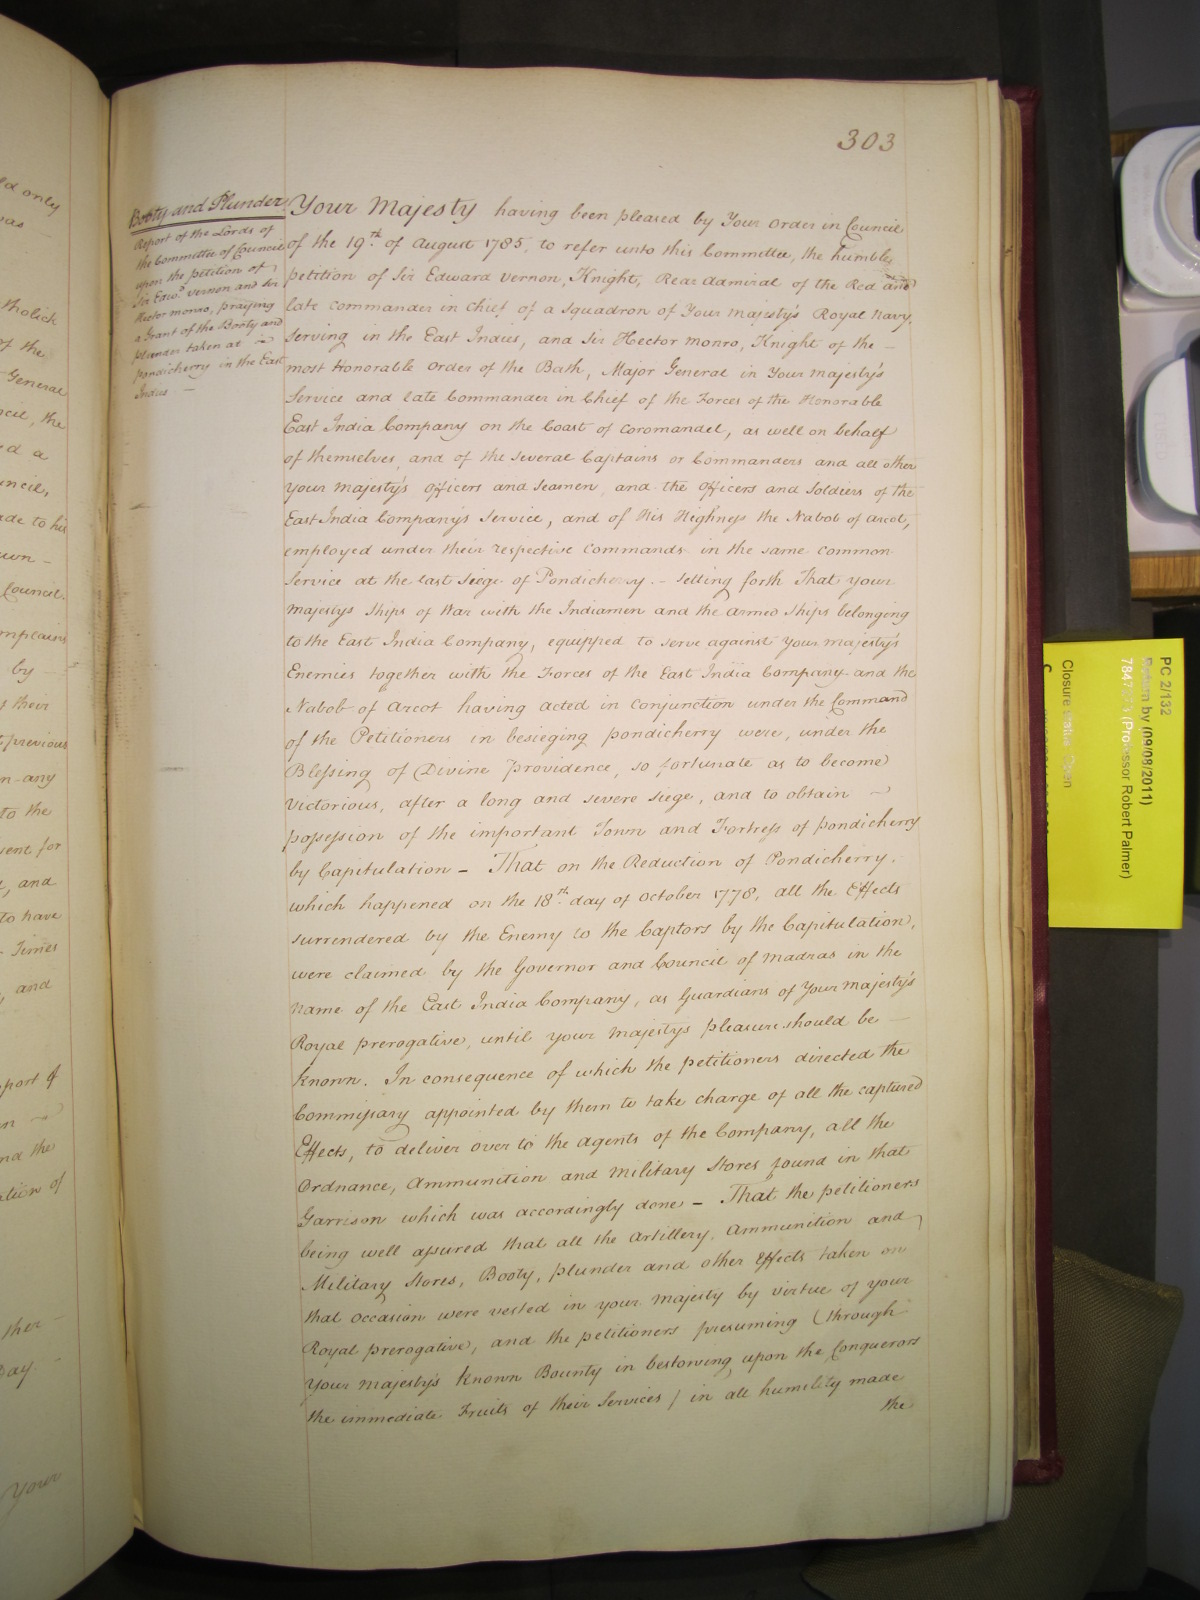 303
Booty and Plunder
Report of the Lords of
the Committee of Council
upon the petition of
Sir Edw.d Vernon and Sir
Hector Monro, praying
a Grant of the Booty and
plunder taken at
pondicherry in the East
Indies —
Your Majesty having been pleased by Your Order in Council
of the 19th of August 1785, to refer unto this Committee, the humble
petition of Sir Edward Vernon, Knight, Rear Admiral of the Red and
late Commander in Chief of a Squadron of Your Majesty's Royal Navy,
serving in the East Indies, and Sir Hector Monro, Knight of the —
most Honorable Order of the Bath, Major General in Your Majesty's
Service and late Commander in Chief of the Forces of the Honorable
East India Company on the Coast of Coromandel, as well on behalf
of themselves, and of the several Captains or Commanders and all other
Your Majesty's Officers and Seamen, and the Officers and Soldiers of the
East India Company's Service, and of His Highness the Nabob of Arcot,
employed under their respective Commands in the same common
Service at the last Siege of Pondicherry. — setting forth That your
Majestys Ships of War with the Indiamen and the Armed Ships belonging
to the East India Company, equipped to serve against Your Majesty's
Enemies together with the Forces of the East India Company and the
Nabob of Arcot having acted in Conjunction under the Command
of the Petitioners in besieging pondicherry were, under the
Blessing of Divine Providence, so fortunate as to become
victorious, after a long and severe siege, and to obtain
possession of the important Town and Fortress of pondicherry
by Capitulation — That on the Reduction of Pondicherry,
which happened on the 18th day of October 1778, all the Effects
surrendered by the Enemy to the Captors by the Capitulation,
were claimed by the Governor and Council of Madras in the
name of the East India Company, as Guardians of Your Majesty's
Royal prerogative, until your Majestys pleasure should be —
known. In consequence of which the petitioners directed the
Commissary appointed by them to take charge of all the captured
Effects, to deliver over to the Agents of the Company, all the
Ordnance, Ammunition and Military Stores found in that
Garrison which was accordingly done — That the petitioners
being well assured that all the Artillery, Ammunition and
Military Stores, Booty, plunder and other Effects taken on
that Occasion were vested in your Majesty by virtue of your
Royal prerogative, and the petitioners presuming (through
Your Majesty's known Bounty in bestowing upon the Conquerors
the immediate Fruits of their Services) in all humility made
the
PC 2/132
Return by (09/08/2011)
(Professor Robert Palmer)
Closure status Open
ld only
was
tholick
of the
General
ncil, the
ed a
uncil,
ade to his
own —
Council.
mplains
by
their
previous
n any
to the
sent for
and
to have
Times
and
port of
nd the
ation of
ther
Day
Your